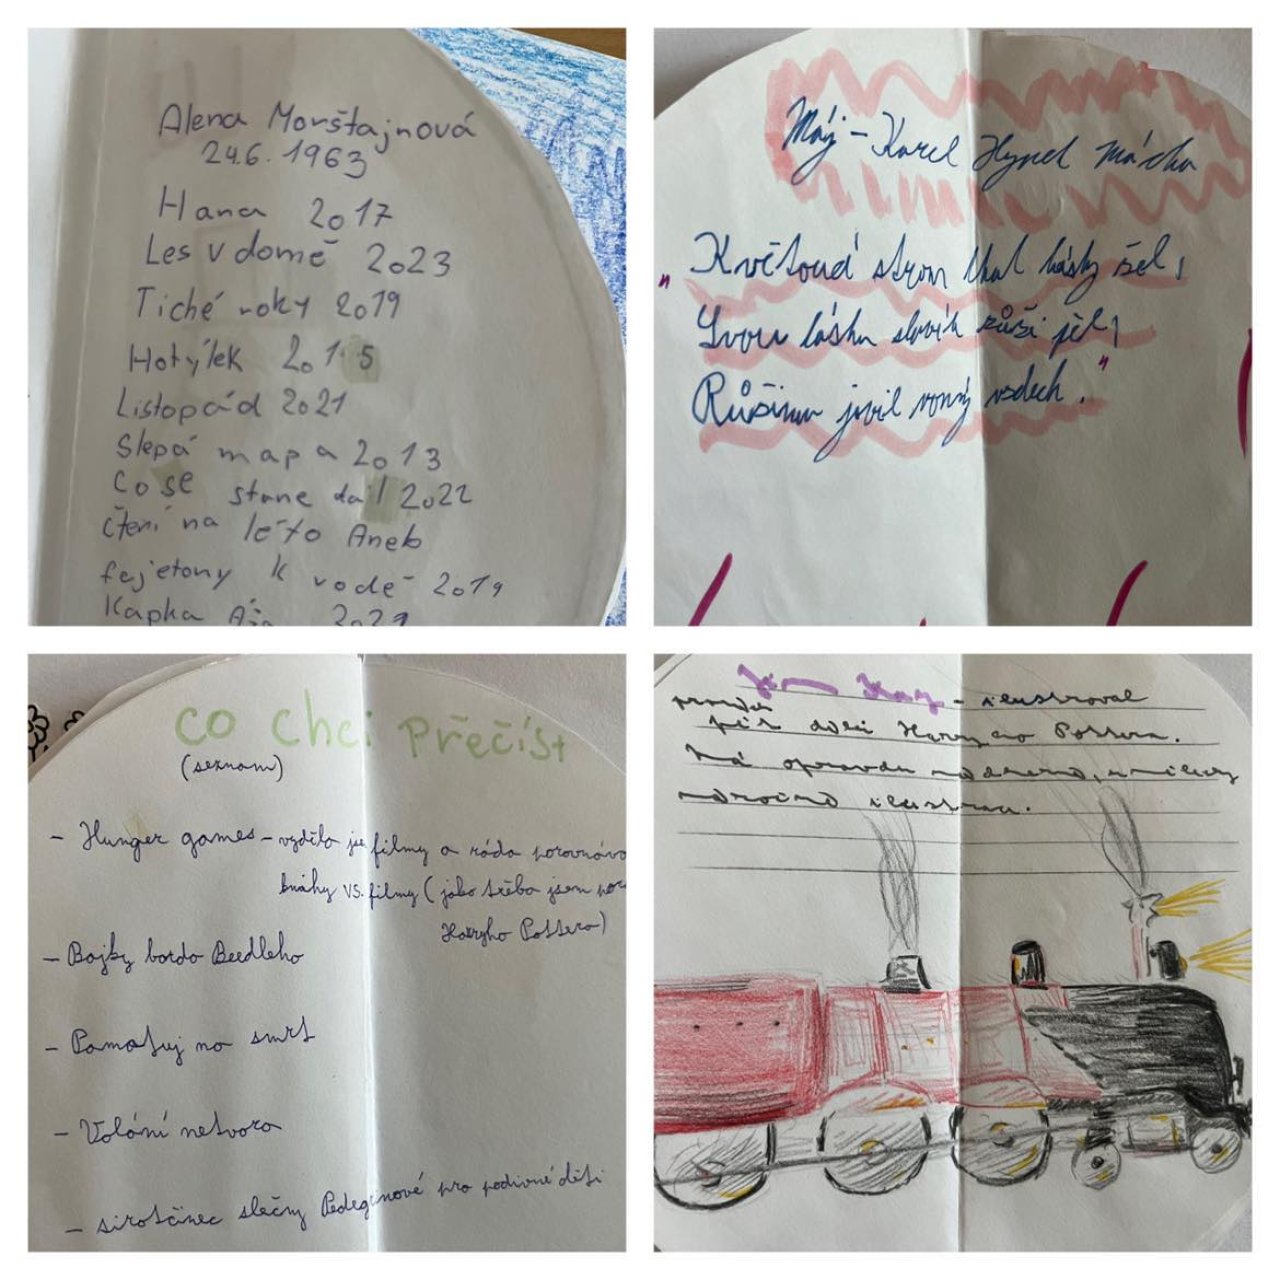 Alena Morštajnová
24.6. 1963
Hana 2017
Les v domě 2023
Tiché roky 2019
Hotýlek 2015
Listopád 2021
Slepá mapa 2013
Co se stane dál 2022
čtení na léto Aneb
fejetony k vodě 2019
Kapka
Máj - Karel Hynek Mácha
"Květoucí strom lhal lásky žel,
Svou lásku slavík růži pěl,
Růžinu jevil vonný vzdech."
co chci přečíst
(seznam)
- Hunger games - viděla jse filmy a ráda porovnáva
knihy vs. filmy (jako třeba jsem por
Harryho Pottera)
- Bajky barda Beedleho
- Pamatuj na smrt
- Volání netvora
- sirotčinec slečny Peregrinové pro podivné děti
Kay - ilustroval
pět dílů Harryho Pottera.
Má opravdu nádherné, umělecky
náročné ilustrace.